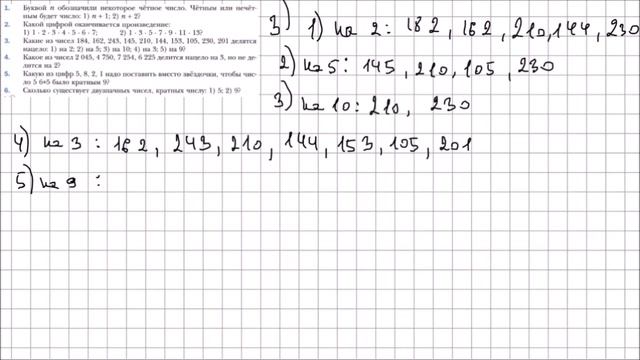 1. Буквой n обозначили некоторое чётное число. Чётным или нечёт-
ным будет число: 1) n + 1; 2) n + 2?
2. Какой цифрой оканчивается произведение:
1) 1 · 2 · 3 · 4 · 5 · 6 · 7; 2) 1 · 3 · 5 · 7 · 9 · 11 · 13?
3. Какие из чисел 184, 162, 243, 145, 210, 144, 153, 105, 230, 201 делятся
нацело: 1) на 2; 2) на 5; 3) на 10; 4) на 3; 5) на 9?
4. Какое из чисел 2 045, 4 750, 7 254, 6 225 делится нацело на 3, но не де-
лится на 2?
5. Какую из цифр 5, 8, 2, 1 надо поставить вместо звёздочки, чтобы чис-
ло 5 6*5 было кратным 9?
6. Сколько существует двузначных чисел, кратных числу: 1) 5; 2) 9?
3) 1) на 2: 182, 162, 210, 144, 230
2) на 5: 145, 210, 105, 230
3) на 10: 210, 230
4) на 3: 162, 243, 210, 144, 153, 105, 201
5) на 9: